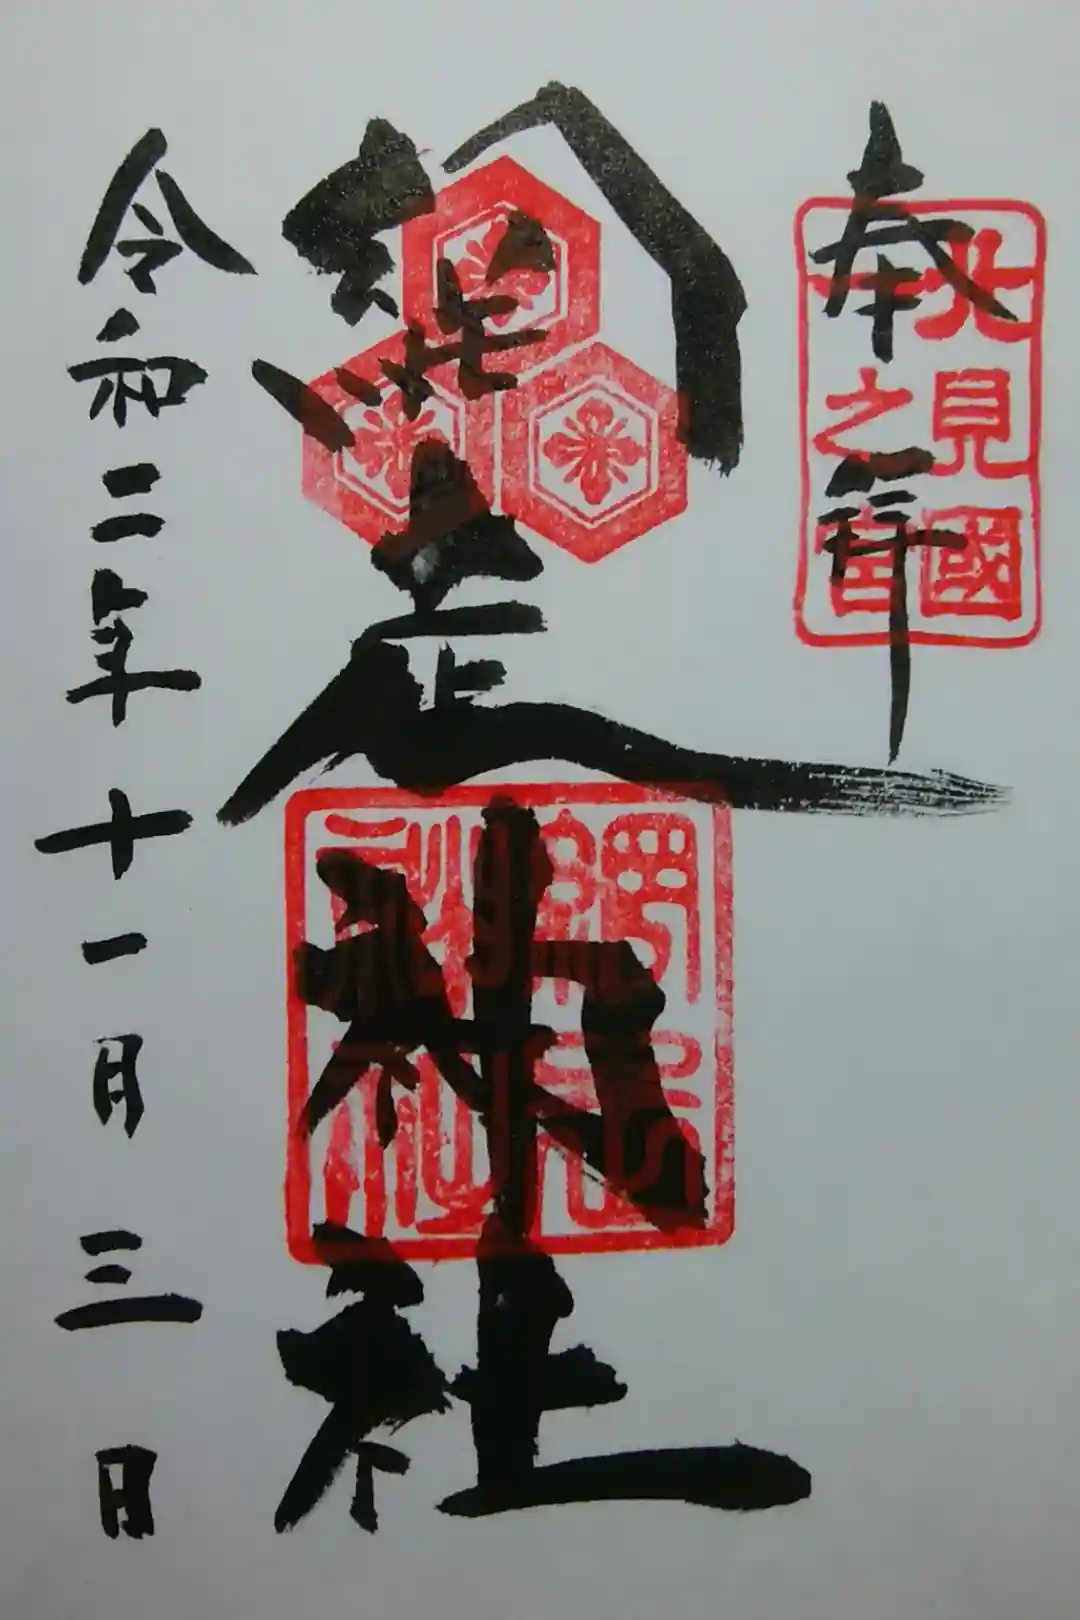 奉拝
北見國
一之宮
網走神社
網走
神社
令和二年十一月三日